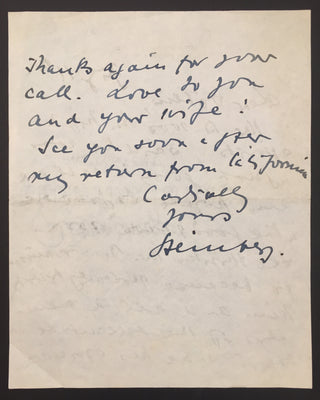 Thanks again for your
call. Love to you
and your wife!
See you soon after
my return from California
Cordially
yours
Steinberg.